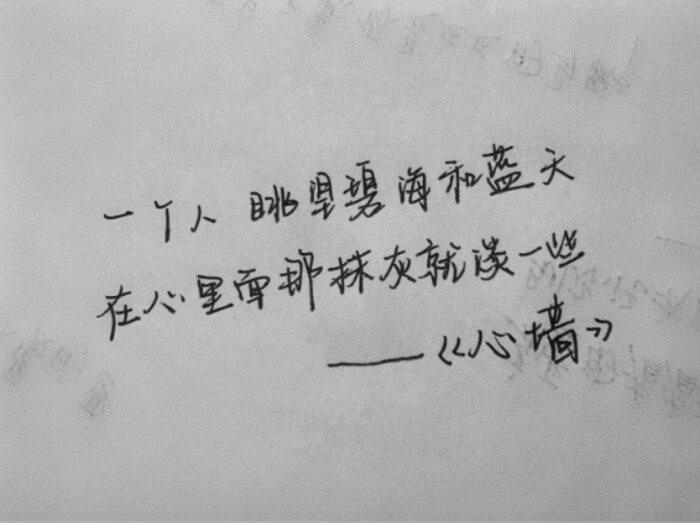 一个人眺望碧海和蓝天
在心里面那抹灰就淡一些
——《心墙》